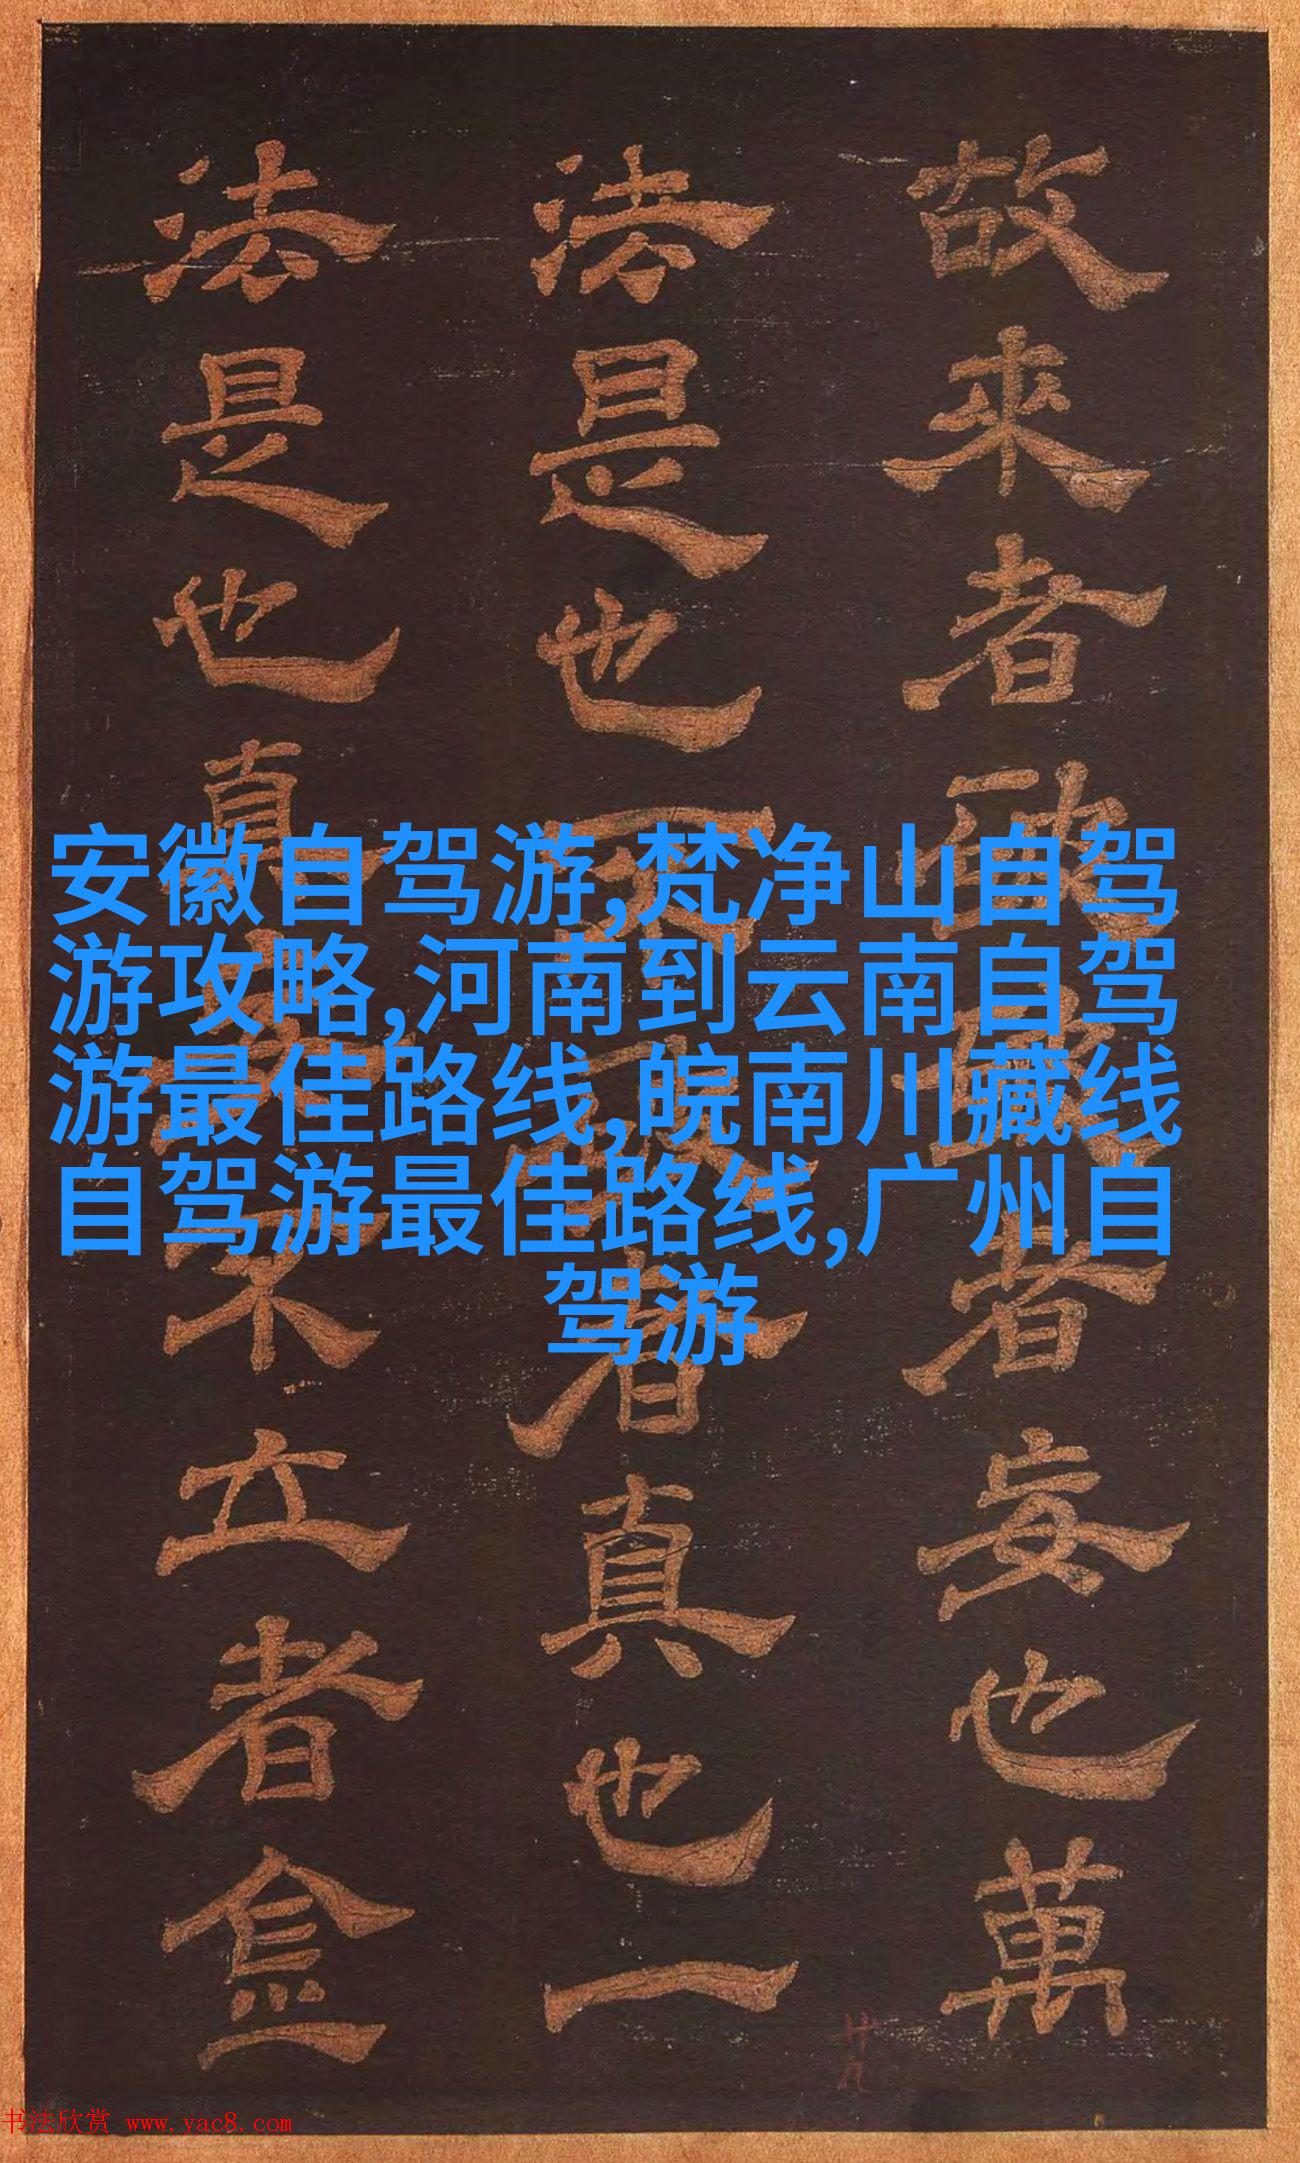 故來者者妄也萬
法是也者真也一
法是也真不立者
安徽自驾游,梵净山自驾
游攻略,河南到云南自驾
游最佳路线,皖南川藏线
自驾游最佳路线,广州自
驾游
廿九
书法欣赏 www.yac8.com